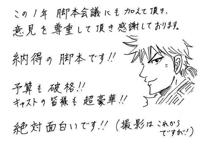 この1年 脚本会議にも加えて頂き、
意見を尊重して頂き感謝しております。
納得の脚本です!!
予算も破格!!
キャストの皆様も超豪華!!
絶対面白いです!! (撮影はこれから
ですが!)